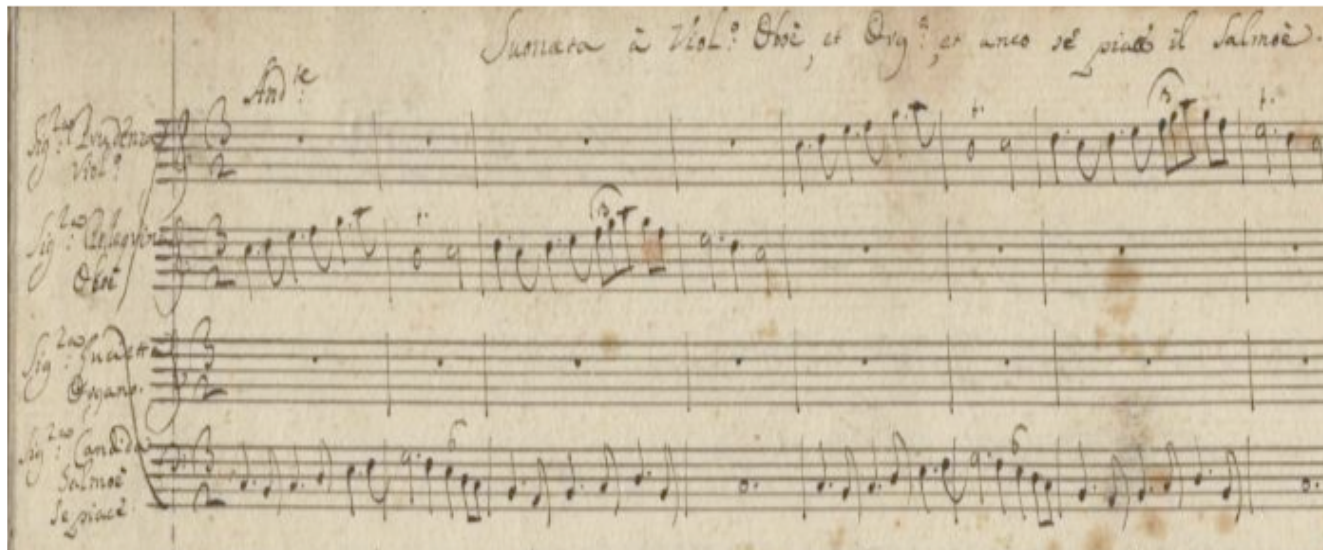 Suonata à Viol.º Oboè, et Org.º, et anco se piacè il Salmoè.
And.te
Sig.ra Prudenza
Viol.º
Sig.ra Pelegrina
Oboè
Sig.ra Lucietta
Organo.
Sig.ra Candida
Salmoè
se piacè.
3
2
3
3
2
3
3
2
3
2
6
6